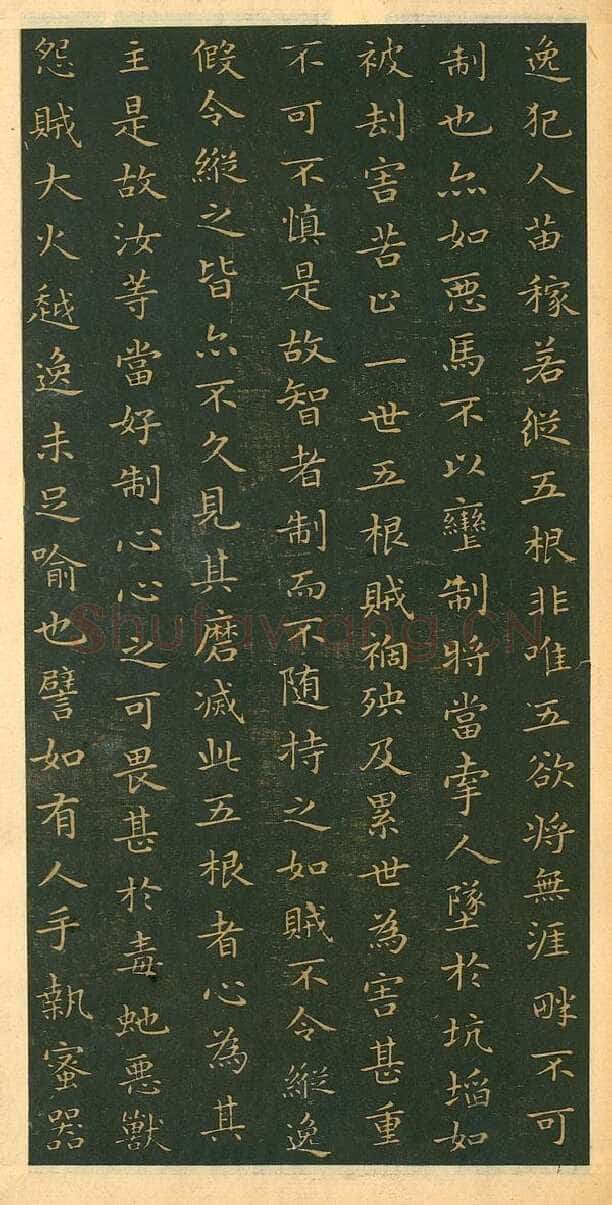 逸犯人苗稼若縱五根非唯五欲将無涯畔不可
制也亦如惡馬不以轡制將當牽人墜於坑埳如
被刦害苦止一世五根賊禍殃及累世為害甚重
不可不慎是故智者制而不随持之如賊不令縱逸
假令縱之皆亦不久見其磨滅此五根者心為其
主是故汝等當好制心心之可畏甚於毒虵惡獸
怨賊大火越逸未足喻也譬如有人手執蜜器
Shufawang.CN